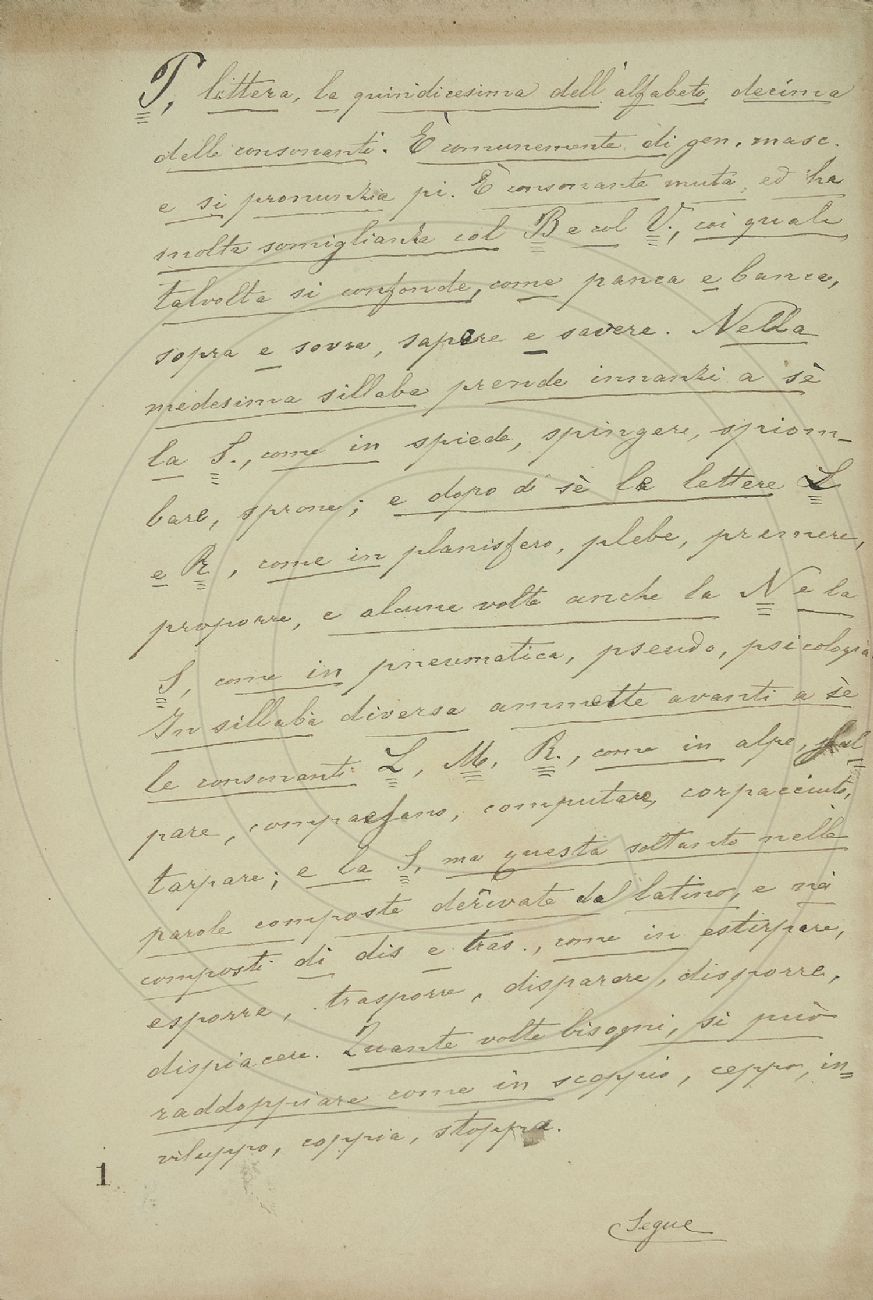 P, lettera, la quindicesima dell'alfabeto, decima
delle consonanti. È comunemente di gen. masc.
e si pronunzia pi. È consonante muta, ed ha
molta somiglianza col B e col V, coi quali
talvolta si confonde, come panca e banca,
sopra e sovra, sapere e savere. Nella
medesima sillaba prende innanzi a sè
la S., come in spiede, spingere, spiom-
bare, sprone; e dopo di sè le lettere L
e R, come in planisfero, plebe, premere,
proporre, e alcune volte anche la N e la
S, come in pneumatica, pseudo, psicologia
In sillaba diversa ammette avanti a sè
le consonanti L, M, R., come in alpe, pal
pare, compaesano, computare, corpacciuto,
tarpare; e la S, ma questa soltanto nelle
parole composte derivate dal latino, e nei
composti di dis e tras., come in estirpare,
esporre, trasporre, disparere, disporre,
dispiacere. Quante volte bisogni, si può
raddoppiare come in scoppio, ceppo, in=
viluppo, coppia, stoppa.
1
Segue